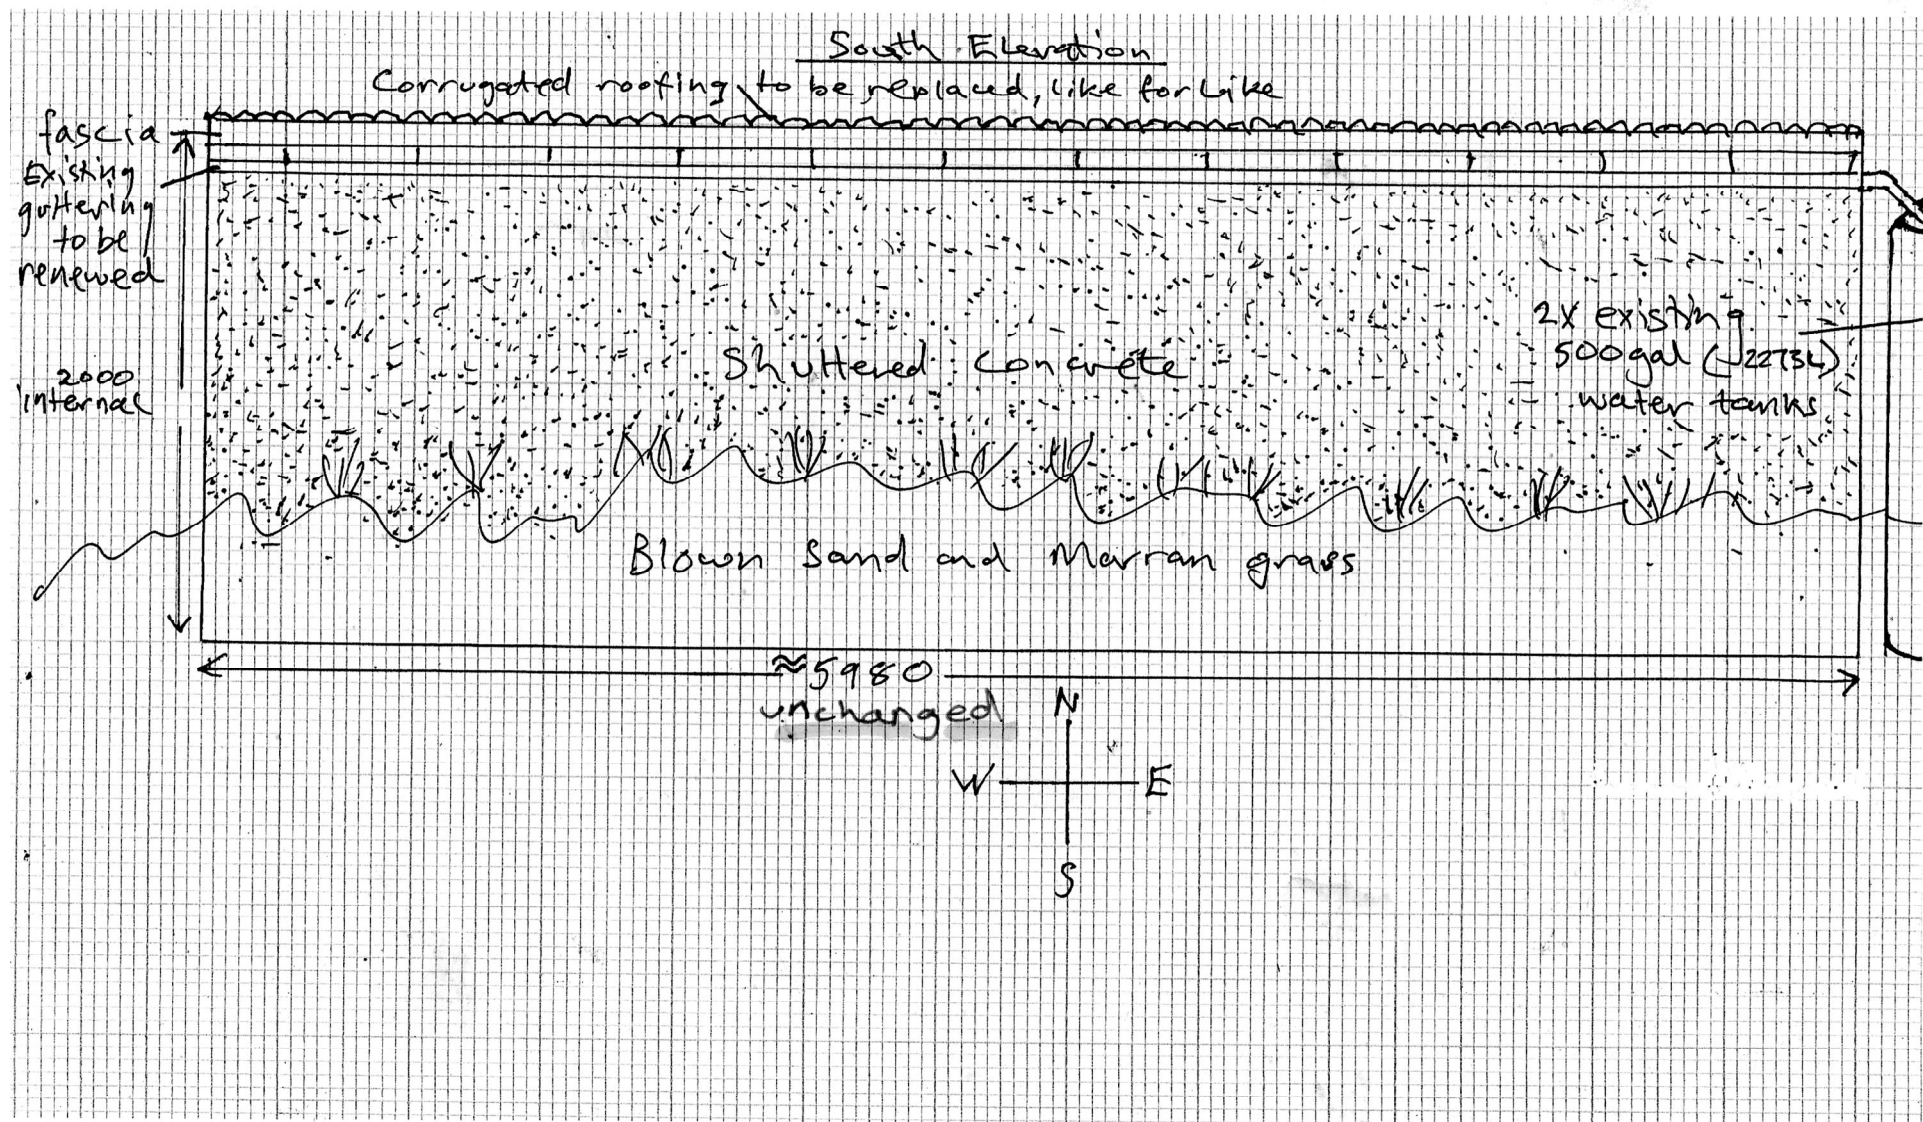 South Elevation
Corrugated roofing to be replaced, like for Like
fascia
Existing
guttering
to be
renewed
2000
internal
Shuttered Concrete
2x existing
500gal (~2273L)
water tanks
Blown Sand and Marran grass
≈5980
unchanged
N
W E
S